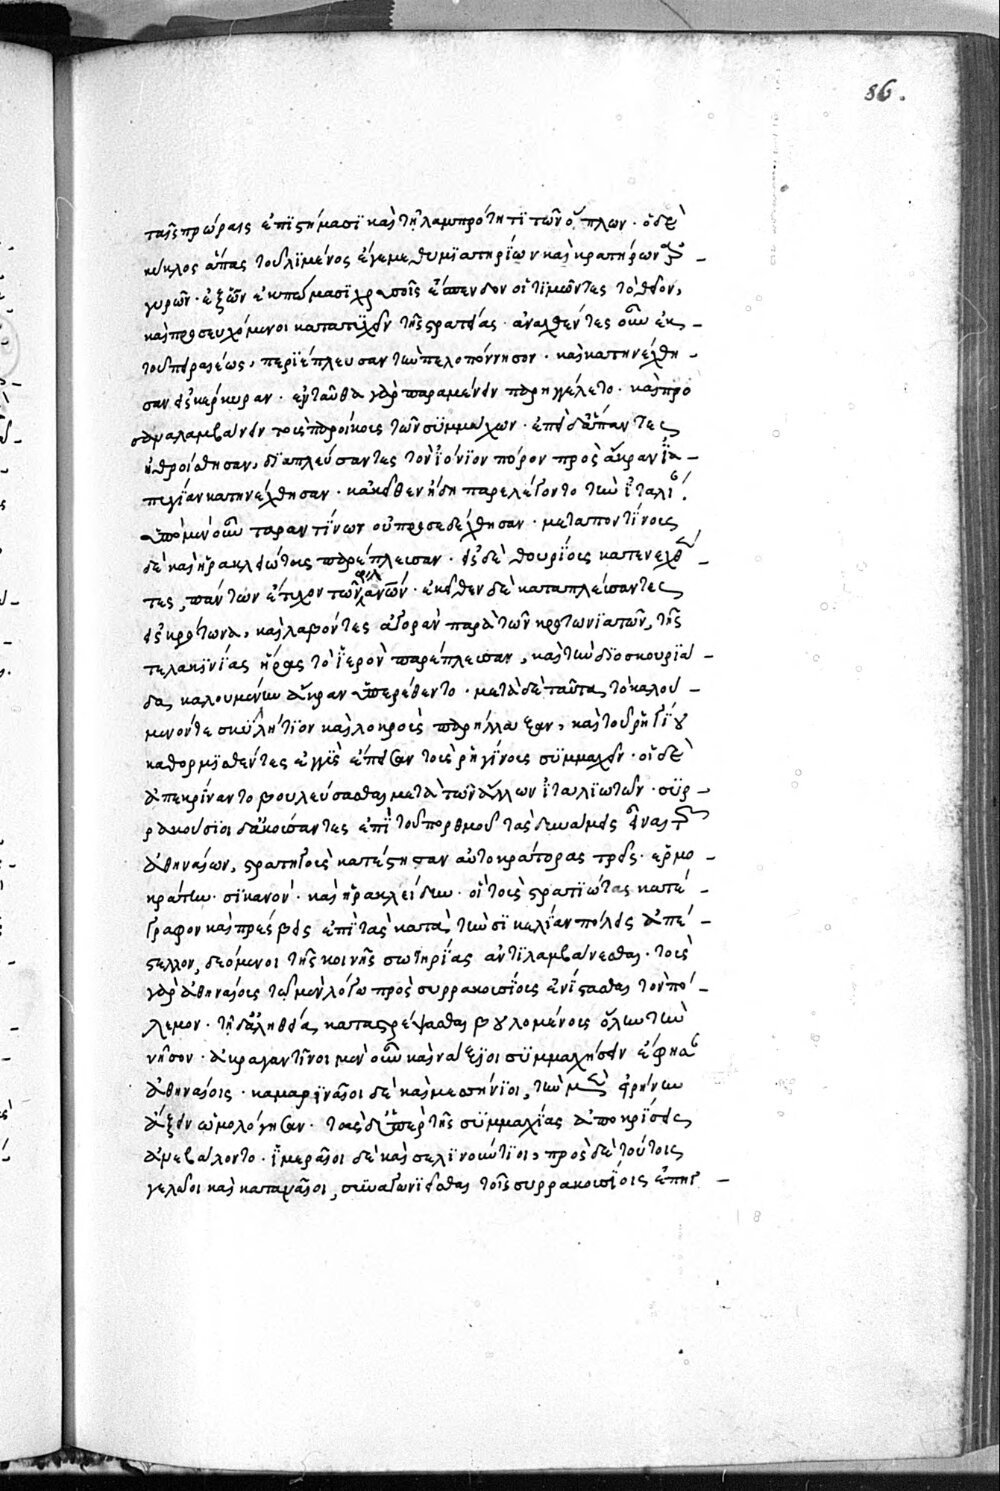 86.
ταῖς πρώραις ἐπιστήμασι καὶ τῇ λαμπρότητι τῶν ὅπλων· ὁ δὲ
κύκλος ἅπας τοῦ λιμένος ἔγεμε θυμιατηρίων καὶ κρατήρων ἀρ
γυρῶν· ἐξ ὧν ἐκπώμασι χρυσοῖς ἔσπενδον οἱ τιμῶντες τὸ θεῖον,
καὶ προσευχόμενοι κατατυχεῖν τῆς στρατείας· ἀναχθέντες οὖν ἐκ
τοῦ πειραιέως, περιέπλευσαν τὴν πελοπόννησον· καὶ κατηνέχθη
σαν εἰς κέρκυραν· ἐνταῦθα γὰρ παραμένειν παρηγγέλετο· καὶ προ
σαναλαμβάνειν τοὺς παροίκους τῶν συμμάχων· ἐπεὶ δ' ἅπαντες
ἠθροίσθησαν, διαπλεύσαντες τὸν ἰόνιον πόρον πρὸς ἄκραν ἰα
πυγίαν κατηνέχθησαν· κἀκεῖθεν ἤδη παρελέγοντο τὴν ἰταλί
ὑπὸ μὲν οὖν ταραντίνων οὐ προσεδέχθησαν· μεταποντίνους
δὲ καὶ ἡρακλεώτους παρέπλευσαν· εἰς δὲ θουρίους κατενεχθέν
τες, πάντων ἔτυχον τῶν φιλανων· ἐκεῖθεν δὲ καταπλεύσαντες
εἰς κρότωνα, καὶ λαβόντες ἀγορὰν παρὰ τῶν κροτωνιατῶν, τῆς
τε λακινίας ἥρας τὸ ἱερὸν παρέπλευσαν, καὶ τὴν διοσκουριά
δα καλουμένην ἄκραν ὑπερέθεντο· μετὰ δὲ ταῦτα τὸ καλού
μενόν τε σκυλήτιον καὶ λοκροὺς παρήλλαξαν, καὶ τοῦ ῥηγίου
καθορμισθέντες ἐγγὺς ἔπειθον τοὺς ῥηγίνους συμμαχεῖν· οἱ δὲ
ἀπεκρίναντο βουλεύσασθαι μετὰ τῶν ἄλλων ἰταλιωτῶν· συρ
ρακούσιοι δ' ἀκούσαντες ἐπὶ τοῦ πορθμοῦ τὰς δυνάμεις εἶναι τῶν
ἀθηναίων, στρατηγοὺς κατέστησαν αὐτοκράτορας τρεῖς· ἑρμο
κράτην· σικανόν· καὶ ἡρακλείδην· οἳ τοὺς στρατιώτας κατέ
γραφον καὶ πρέσβεις ἐπὶ τὰς κατὰ τὴν σικελίαν πόλεις ἀπέ
στελλον, δεόμενοι τῆς κοινῆς σωτηρίας ἀντιλαμβάνεσθαι· τοὺς
γὰρ ἀθηναίους τῷ μὲν λόγῳ πρὸς συρρακουσίους ἐνίστασθαι τὸν πό
λεμον· τῇ δ' ἀληθείᾳ καταστρέψασθαι βουλομένους ὅλην τὴν
νῆσον· ἀκραγαντῖνοι μὲν οὖν καὶ νάξιοι συμμαχήσειν ἔφησαν
ἀθηναίοις· καμαριναῖοι δὲ καὶ μεσσήνιοι, τὴν μὲν εἰρήνην
ἄξειν ὡμολόγησαν· τὰς δ' ὑπὲρ τῆς συμμαχίας ἀποκρίσεις
ἀνεβάλοντο· ἱμεραῖοι δὲ καὶ σελινούντιοι, πρὸς δὲ τούτοις
γελῶοι καὶ καταναῖοι, συναγωνιεῖσθαι τοῖς συρρακουσίοις ἐπηγ